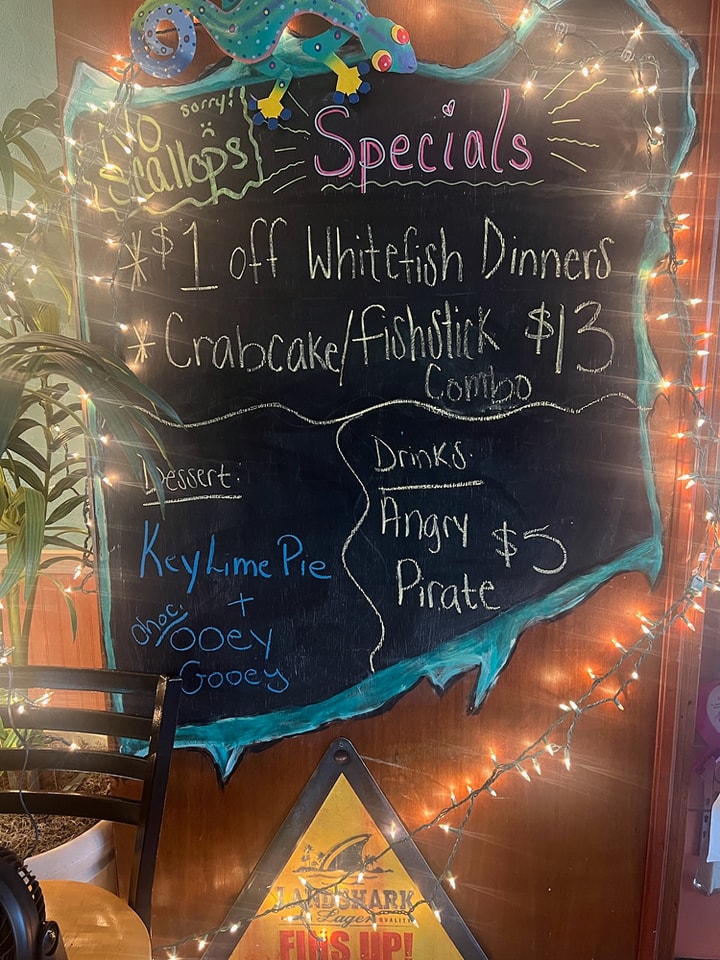 No sorry!
Scallops
Specials
*$1 off Whitefish Dinners
*Crabcake/fishstick $13
Combo
Dessert:
Key Lime Pie
+
choc. ooey
Gooey
Drinks:
Angry $5
Pirate
LANDSHARK
Lager QUALITY
FINS UP!